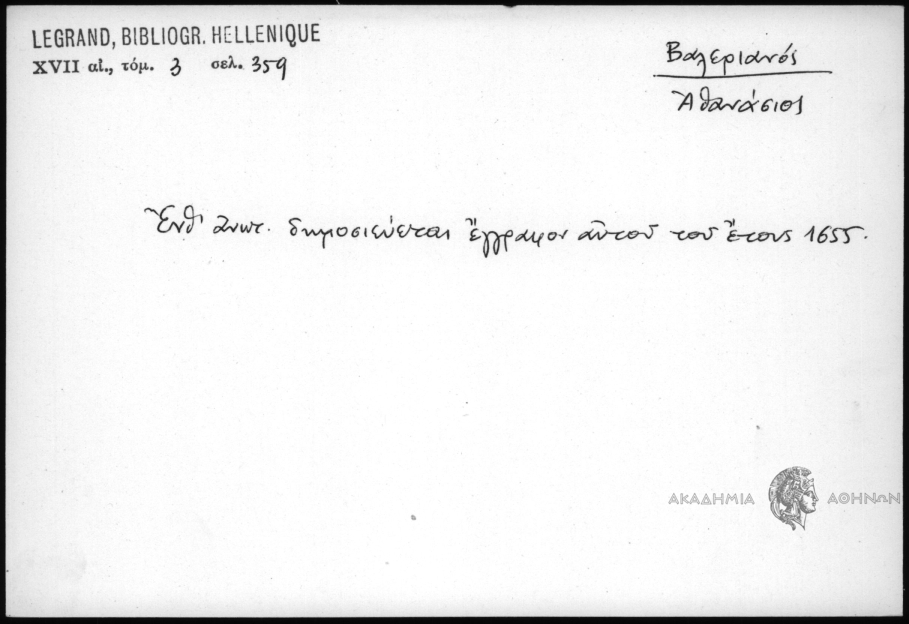 LEGRAND, BIBLIOGR. HELLENIQUE
XVII αἰ., τόμ. 3 σελ. 359
Βαλεριανός
Ἀθανάσιος
Ἔνθ' ἀνωτ. δημοσιεύεται ἔγγραφον αὐτοῦ τοῦ ἔτους 1655.
ΑΚΑΔΗΜΙΑ ΑΘΗΝΩΝ